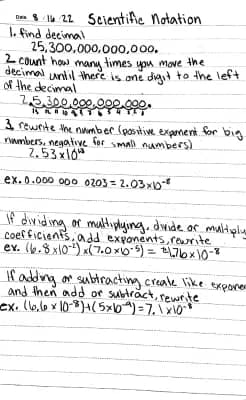 Date 8/16/22 Scientific Notation
1. find decimal
25,300,000,000,000.
2. count how many times you move the
decimal until there is one digit to the left
of the decimal
2.5,300,000,000,000.
3. rewrite the number (positive exponent for big
numbers, negative for small numbers)
2.53x10¹³
ex. 0.000 000 0203 = 2.03x10⁻⁸
if dividing or multiplying, divide or multiply
coefficients, add exponents, rewrite
ex. (6.8x10⁻²) x(7.0x10⁻⁵) = 4.76x10⁻⁸
If adding or subtracting create like exponen
and then add or subtract, rewrite
ex. (6.6 x 10⁻⁸)+(5x10⁻⁹)=7.1x10⁻⁸